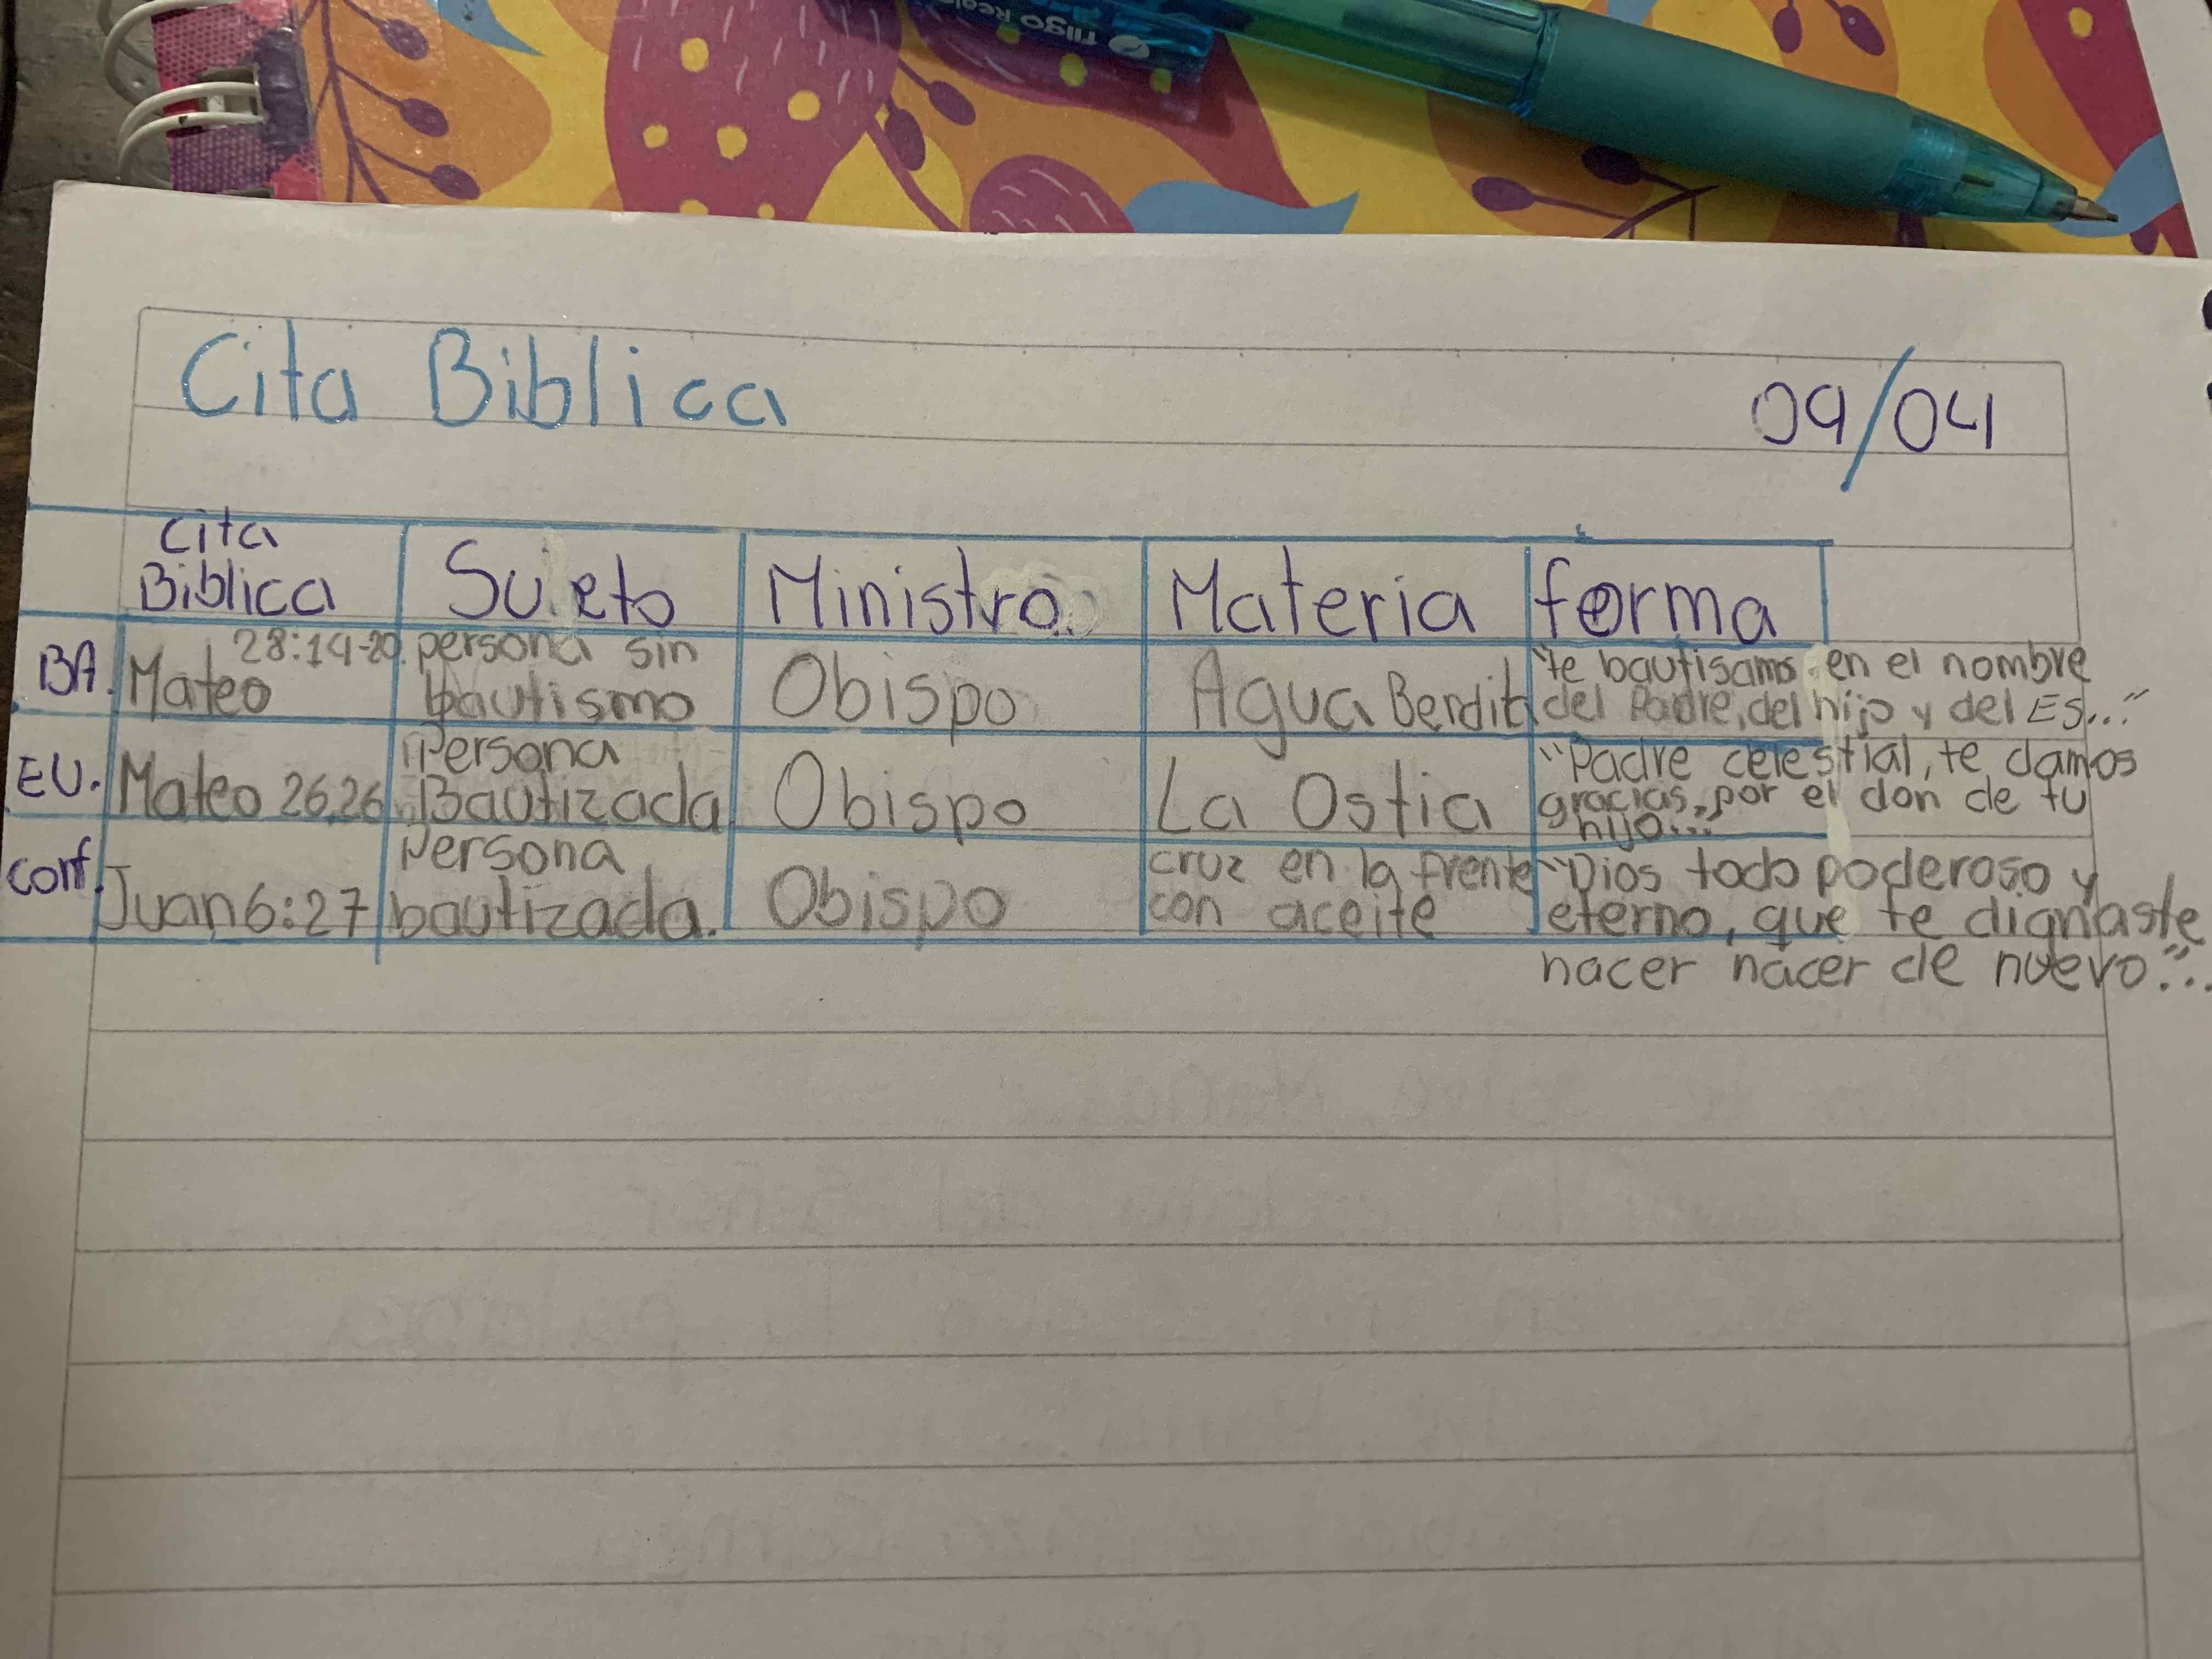 Cita Biblica 09/04
cita
Biblica Sujeto Ministro. Materia forma
BA. Mateo 28:19-20. persona sin
bautismo Obispo Agua Bendita "te bautisamos en el nombre
del Padre, del hijo y del ES..."
EU. Mateo 26,26 Persona
Bautizada Obispo La Ostia "Padre celestial, te damos
gracias, por el don de tu
hijo..."
conf. Juan 6:27 Persona
bautizada. Obispo cruz en la frente
con aceite "Dios todo poderoso y
eterno, que te dignaste
hacer nacer de nuevo"...